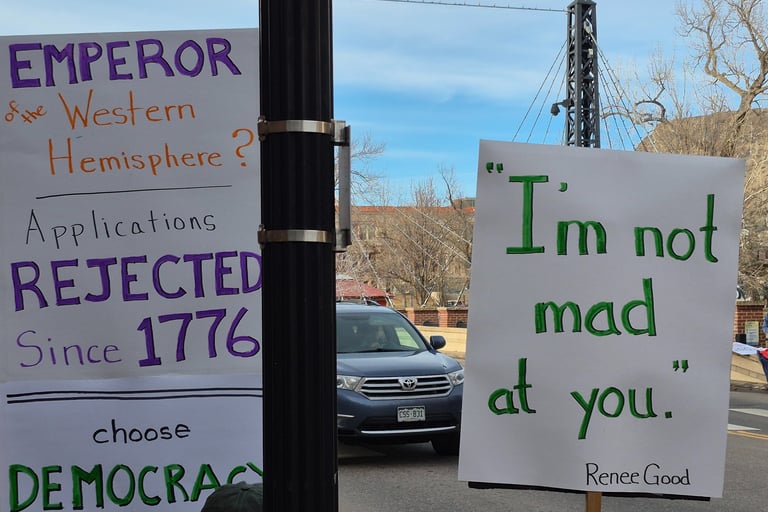 EMPEROR
of the Western
Hemisphere?
Applications
REJECTED
Since 1776
choose
DEMOCRACY
CSS-B31
"I'm not
mad
at you."
Renee Good